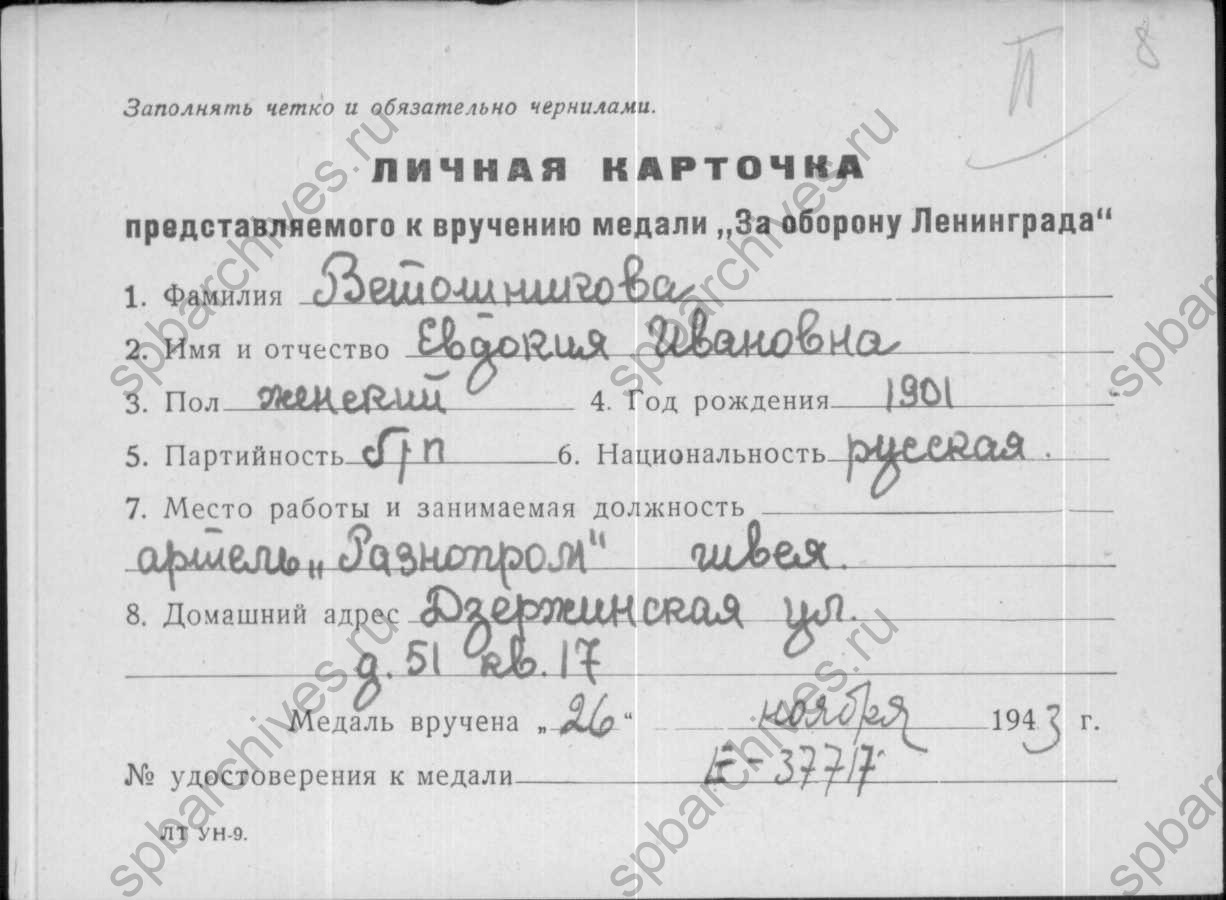 П 8
Заполнять четко и обязательно чернилами.
ЛИЧНАЯ КАРТОЧКА
представляемого к вручению медали „За оборону Ленинграда“
1. Фамилия Ветошникова
2. Имя и отчество Евдокия Ивановна
3. Пол женский 4. Год рождения 1901
5. Партийность б/п 6. Национальность русская.
7. Место работы и занимаемая должность
артель „Разнопром“ швея.
8. Домашний адрес Дзержинская ул.
д. 51 кв. 17
Медаль вручена „26“ ноября 1943 г.
№ удостоверения к медали Е-37717
ЛТ УН-9.
spbarchives.ru
spbarchives.ru
spbarchives.ru
spbarchives.ru
spbarchives.ru
spbarchives.ru